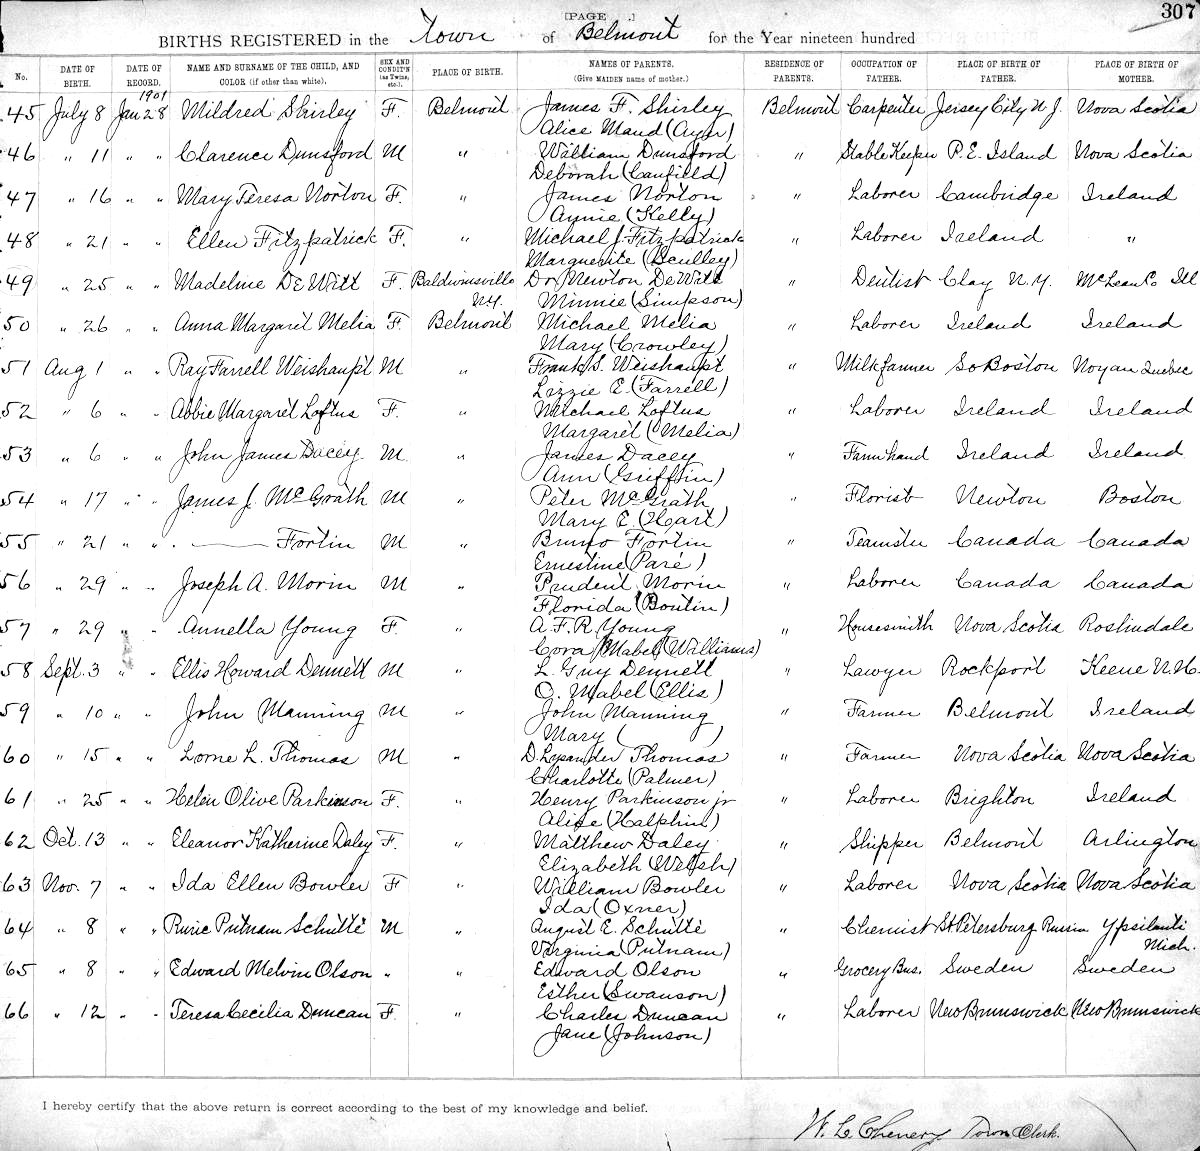 [PAGE .] 307
BIRTHS REGISTERED in the Town of Belmont for the Year nineteen hundred
No. DATE OF BIRTH. DATE OF RECORD. NAME AND SURNAME OF THE CHILD, AND COLOR (if other than white). SEX AND CONDIT'N (as Twins, etc.). PLACE OF BIRTH. NAMES OF PARENTS. (Give MAIDEN name of mother.) RESIDENCE OF PARENTS. OCCUPATION OF FATHER. PLACE OF BIRTH OF FATHER. PLACE OF BIRTH OF MOTHER.
1901
45 July 8 Jan 28 Mildred Shirley F. Belmont James F. Shirley Belmont Carpenter Jersey City N.J. Nova Scotia
Alice Maud (Ayer)
46 " 11 " " Clarence Dunsford M " William Dunsford " Stable Keeper P.E. Island Nova Scotia
Deborah (Canfield)
47 " 16 " " Mary Teresa Norton F. " James Norton " Laborer Cambridge Ireland
Annie (Kelly)
48 " 21 " " Ellen Fitzpatrick F. " Michael J. Fitzpatrick " Laborer Ireland "
Marguerite (Sculley)
49 " 25 " " Madeline DeWitt F. Baldwinsville Dr Newton DeWitt " Dentist Clay N.Y. McLean Co Ill
N.Y. Minnie (Simpson)
50 " 26 " " Anna Margaret Melia F. Belmont Michael Melia " Laborer Ireland Ireland
Mary (Crowley)
51 Aug 1 " " Ray Farrell Weishaupt M " Frank S. Weishaupt " Milk farmer So Boston Noyan Quebec
Lizzie E. (Farrell)
52 " 6 " " Abbie Margaret Loftus F. " Michael Loftus " Laborer Ireland Ireland
Margaret (Melia)
53 " 6 " " John James Dacey M " James Dacey " Farm hand Ireland Ireland
Ann (Griffin)
54 " 17 " " James J. McGrath M " Peter McGrath " Florist Newton Boston
Mary E. (Hart)
55 " 21 " " —— Fortin M " Bruno Fortin " Teamster Canada Canada
Ernestine (Paré)
56 " 29 " " Joseph A. Morin M " Prudent Morin " Laborer Canada Canada
Florida (Boutin)
57 " 29 " " Annella Young F. " A.F.R. Young " Housesmith Nova Scotia Roslindale
Cora Mabel (Williams)
58 Sept. 3 " " Ellis Howard Dennett M " L. Guy Dennett " Lawyer Rockport Keene N.H.
O. Mabel (Ellis)
59 " 10 " " John Manning M " John Manning " Farmer Belmont Ireland
Mary ( )
60 " 15 " " Lorne L. Thomas M " D. Lysander Thomas " Farmer Nova Scotia Nova Scotia
Charlotte (Palmer)
61 " 25 " " Helen Olive Parkinson F. " Henry Parkinson jr " Laborer Brighton Ireland
Alice (Halphin)
62 Oct. 13 " " Eleanor Katherine Daley F. " Matthew Daley " Shipper Belmont Arlington
Elizabeth (Welsh)
63 Nov. 7 " " Ida Ellen Bowler F " William Bowler " Laborer Nova Scotia Nova Scotia
Ida (Oxner)
64 " 8 " " Ruric Putnam Schutte M " August E. Schutte " Chemist St Petersburg Russia Ypsilanti
Virginia (Putnam) Mich.
65 " 8 " " Edward Melvin Olson " " Edward Olson " Grocery Bus. Sweden Sweden
Esther (Swanson)
66 " 12 " " Teresa Cecilia Duncan F. " Charles Duncan " Laborer New Brunswick New Brunswick
Jane (Johnson)
I hereby certify that the above return is correct according to the best of my knowledge and belief.
W. L. Chenery Town Clerk.